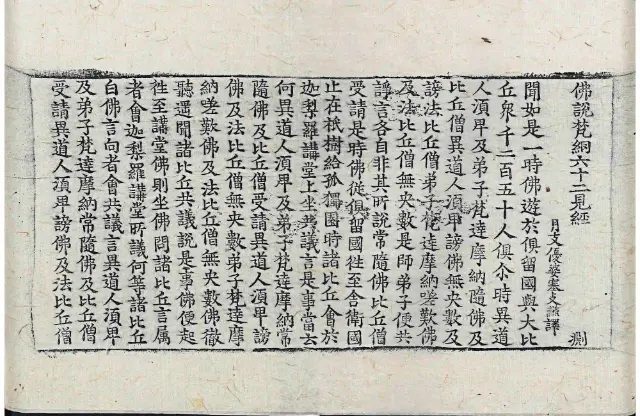 佛說梵網六十二見經
月支優婆塞支謙譯
聞如是一時佛遊於俱留國與大比
丘衆千二百五十人俱尒時異道
人須卑及弟子梵達摩納隨佛及
比丘僧異道人須卑謗佛無央數及
謗法比丘僧弟子梵達摩納嗟歎佛
及法比丘僧無央數是師弟子便共
諍言各自非其所說常隨佛比丘僧
受請是時佛從俱留國徃至舍衛國
止在祇樹給孤獨園時諸比丘會於
迦梨羅講堂上坐共議言是事當云
何異道人須卑及弟子梵達摩納常
隨佛及比丘僧受請異道人須卑謗
佛及法比丘僧無央數弟子梵達摩
納嗟歎佛及法比丘僧無央數佛徹
聽遥聞諸比丘共議說是事佛便起
徃至講堂佛則坐佛問諸比丘言属
者會迦梨羅講堂所議何等諸比丘
白佛言向者會共議言異道人須卑
及弟子梵達摩納常隨佛及比丘僧
受請異道人須卑謗佛及法比丘僧